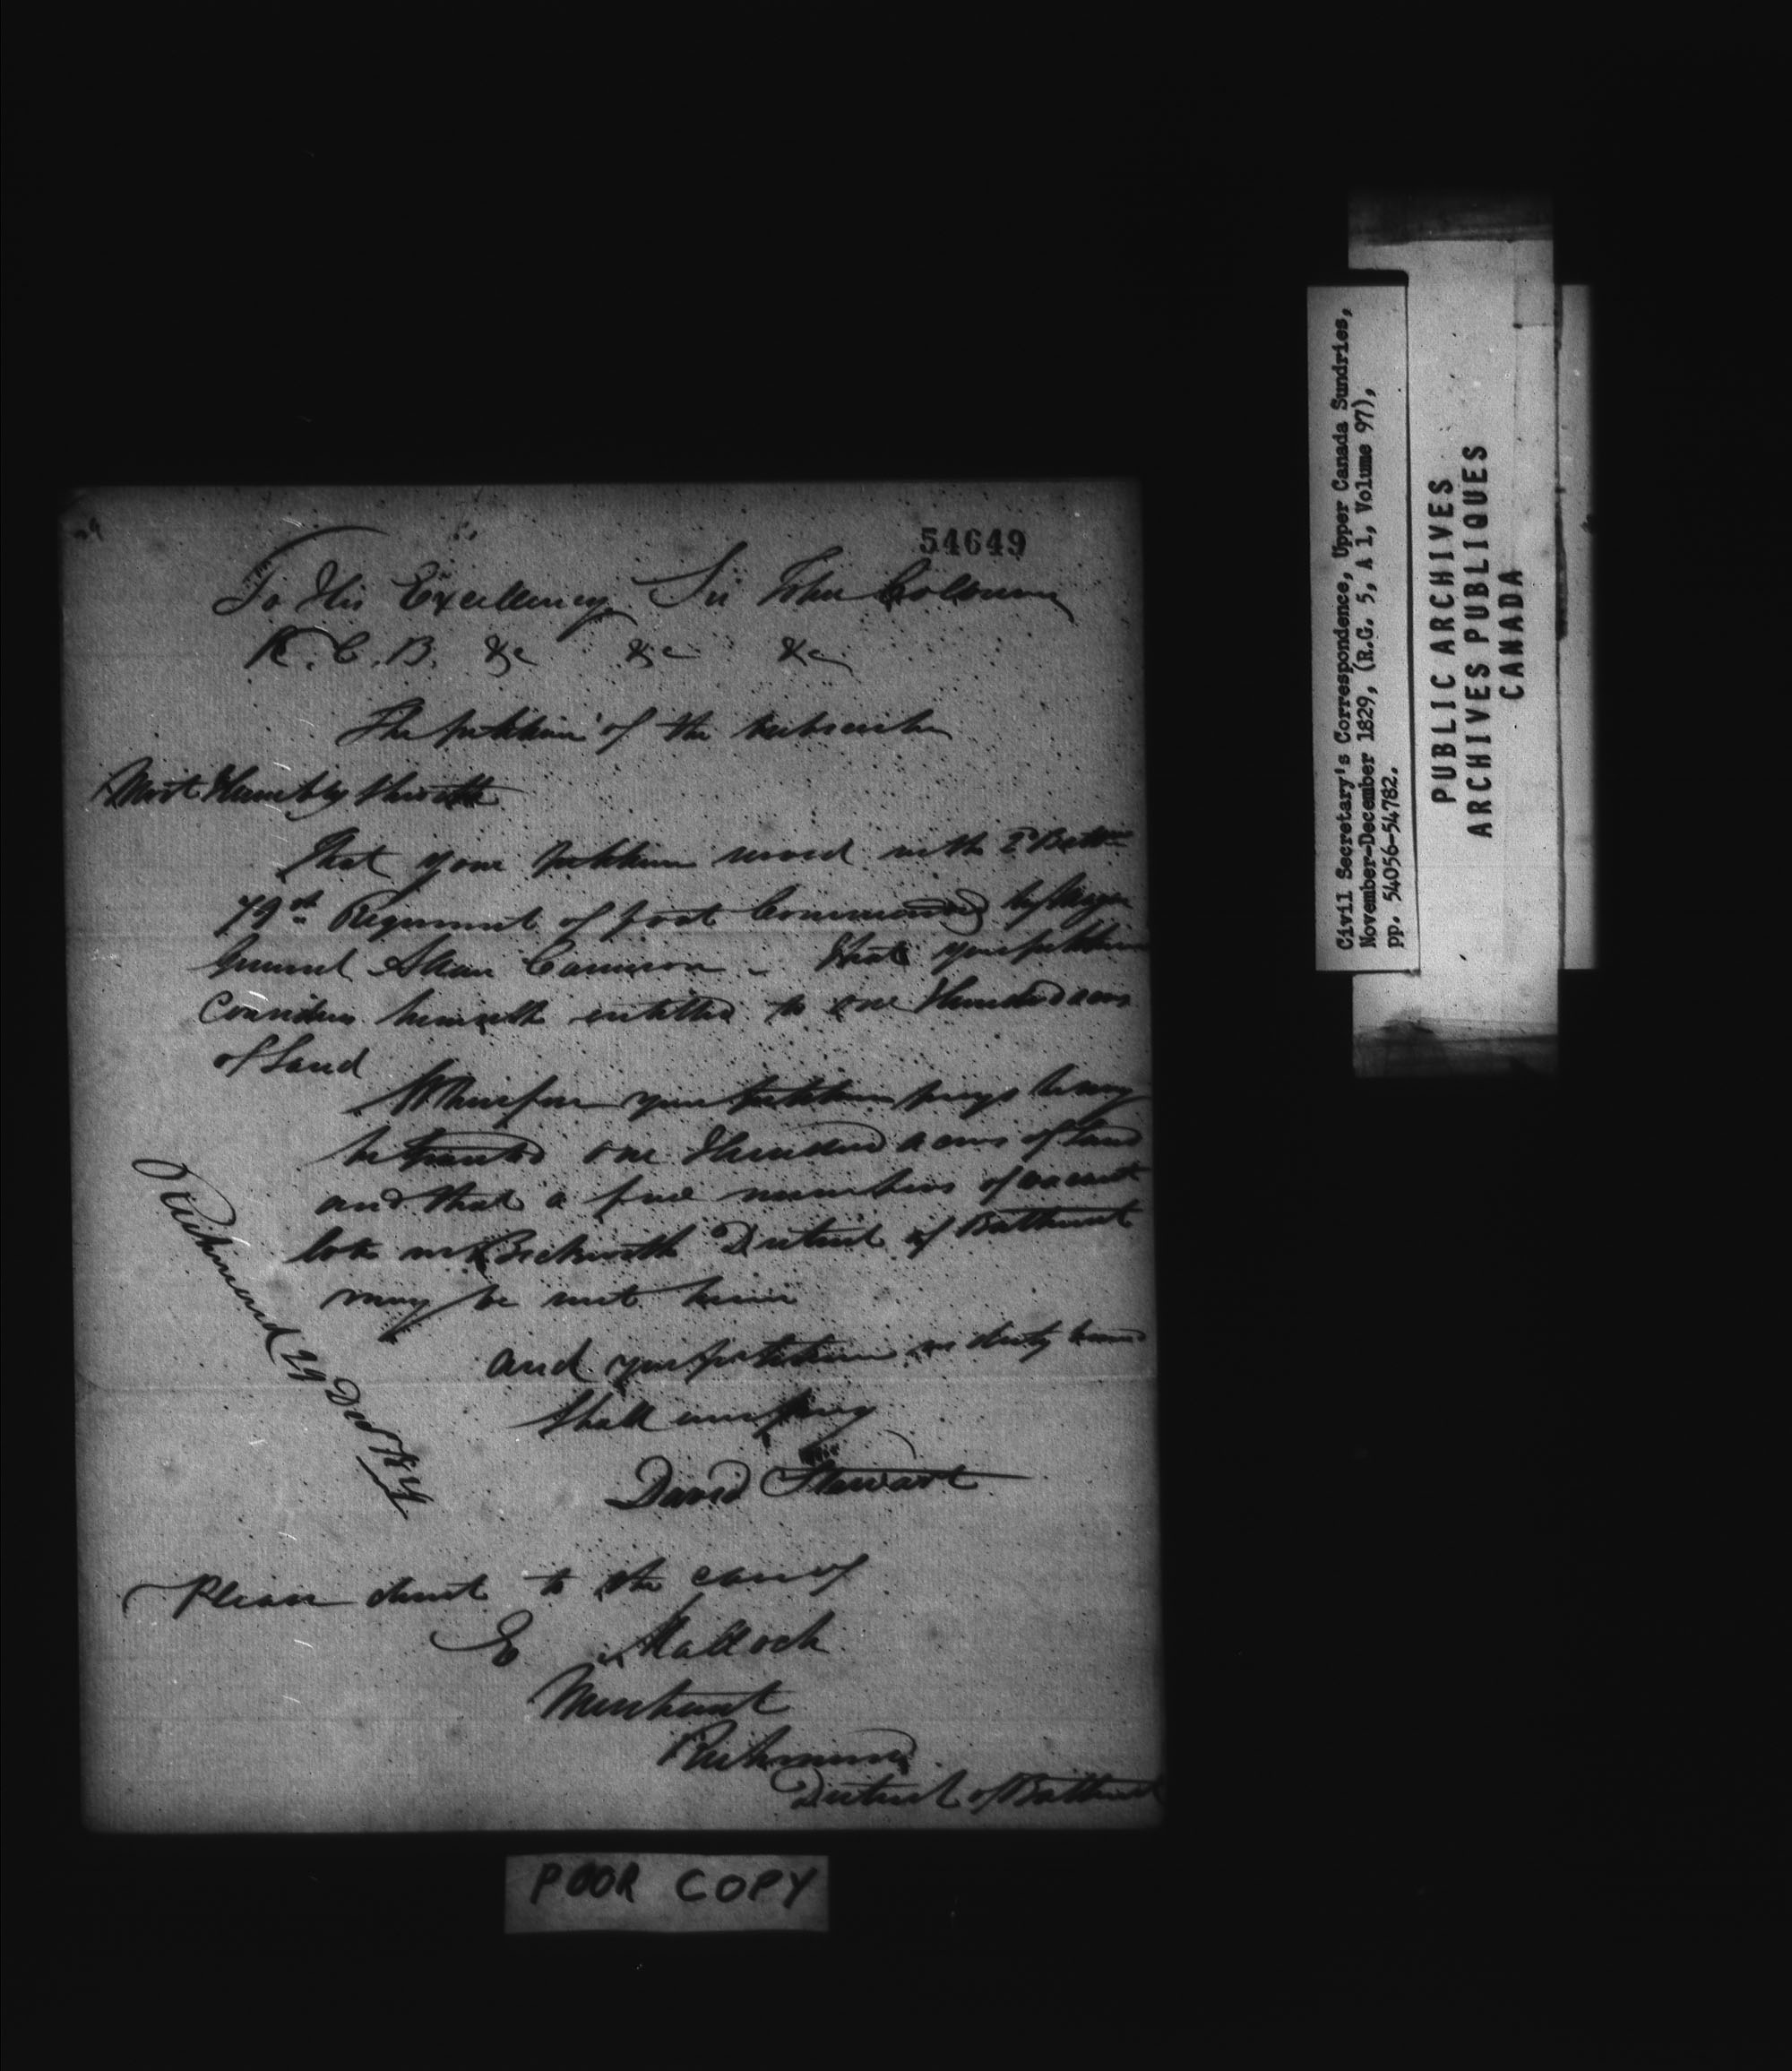 54649
To His Excellency Sir John Colborne
K. C. B. &c &c &c
The petition of the subscriber
Most Humbly Sheweth
That your petitioner served in the 2d Battn
79th Regiment of foot Commanded by Major
General Allan Cameron - That your petitioner
Considers himself entitled to one Hundred acres
of Land
Wherefore your petitioner prays he may
be Granted one Hundred acres of land
and that a few numbers of vacant
lots in Beckwith District of Bathurst
may be sent him
and your petitioner in duty bound
shall ever pray
David Stewart
Richmond 29 Decr
Please direct to the care of
E Malloch
Merchant
Richmond
District of Bathurst
POOR COPY
Civil Secretary's Correspondence, Upper Canada Sundries,
November-December 1829, (R.G. 5, A 1, Volume 97),
pp. 54056-54782.
PUBLIC ARCHIVES
ARCHIVES PUBLIQUES
CANADA